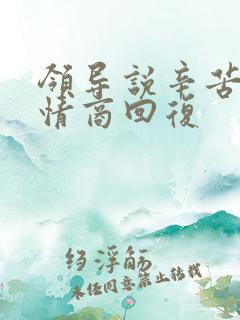 領导說辛苦
情商回復
绉浮觞
未经同意禁止转载